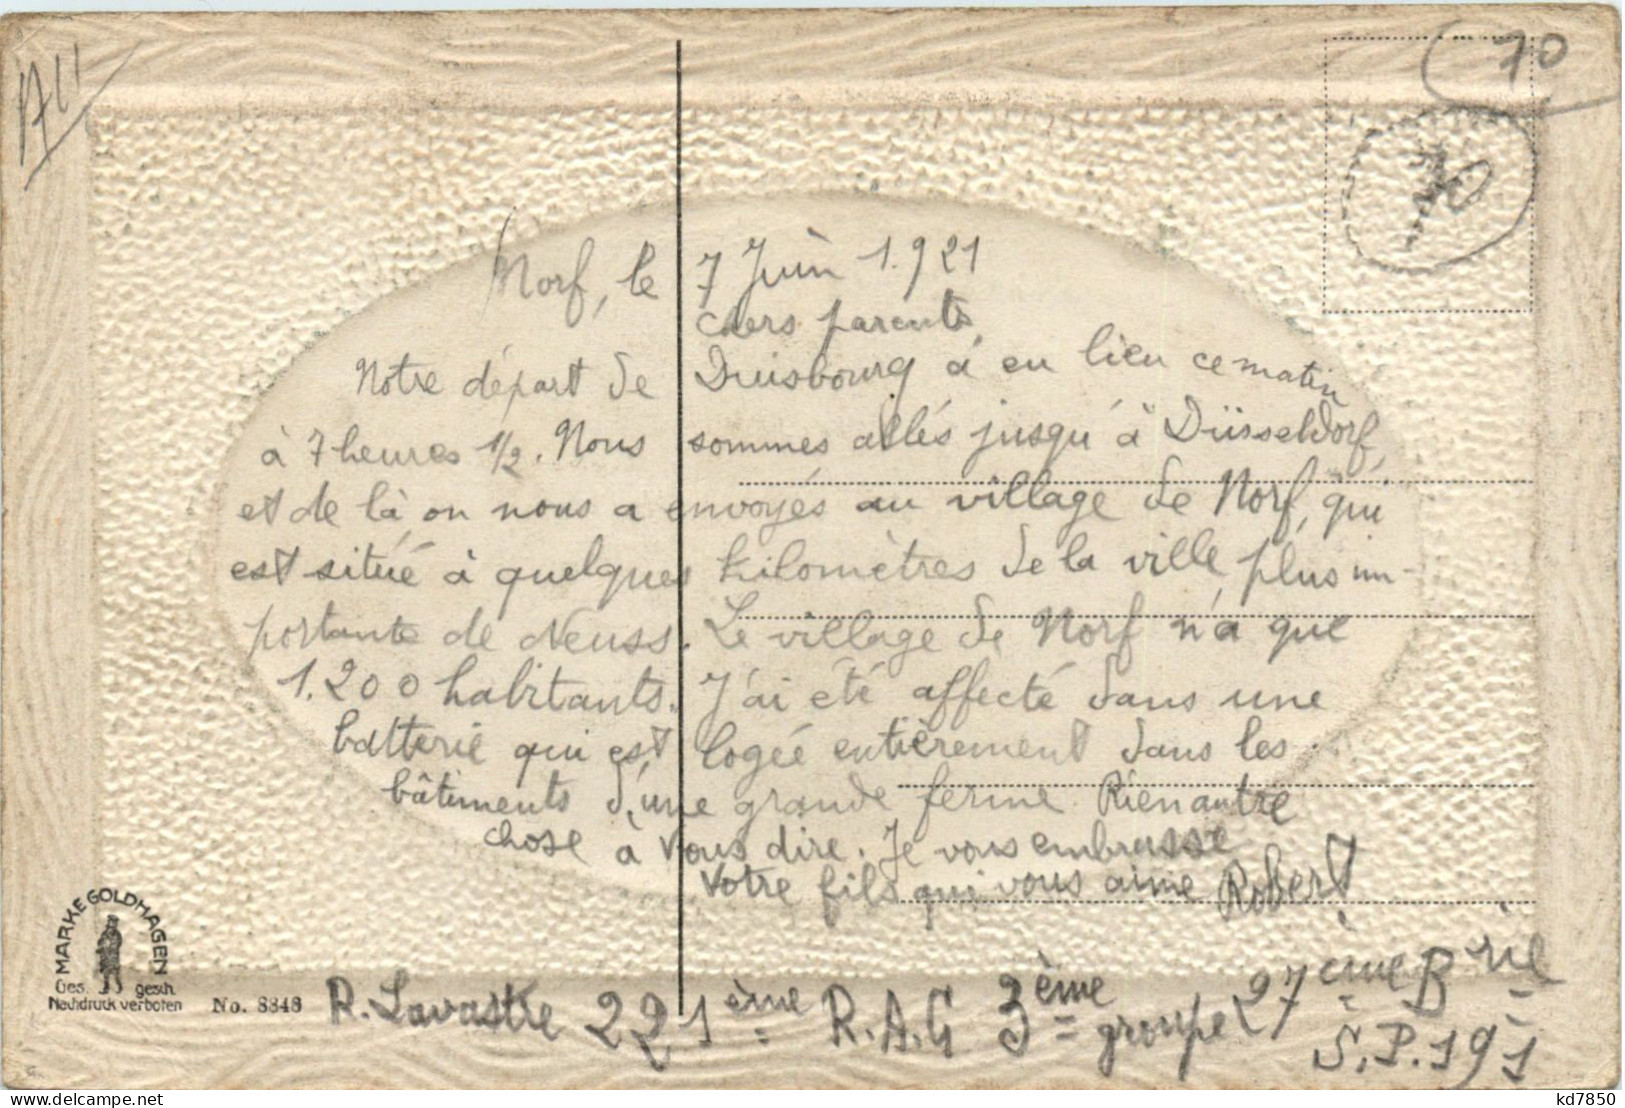 70
70
Norf, le 7 Juin 1.921
Chers parents,
Notre départ de Duisbourg á eu lieu ce matin
à 7 heures 1/2. Nous sommes allés jusqu'à Düsseldorf,
et de là, on nous a envoyés au village de Norf, qui
est situé à quelques kilomètres de la ville, plus im-
portante de Neuss. Le village de Norf n'a que
1.200 habitants. J'ai été affecté dans une
batterie qui est logée entièrement dans les
bâtiments d'une grande ferme. Rien autre
chose à vous dire. Je vous embrasse
Votre fils qui vous aime Robert
R. Lavastre 221ème R.A.G 3ème groupe 27ème Brie
S.P.191
MARKE GOLDHAGEN
Ges. gesch.
Nachdruck verboten
No. 8848
delcampe.net
kd7850